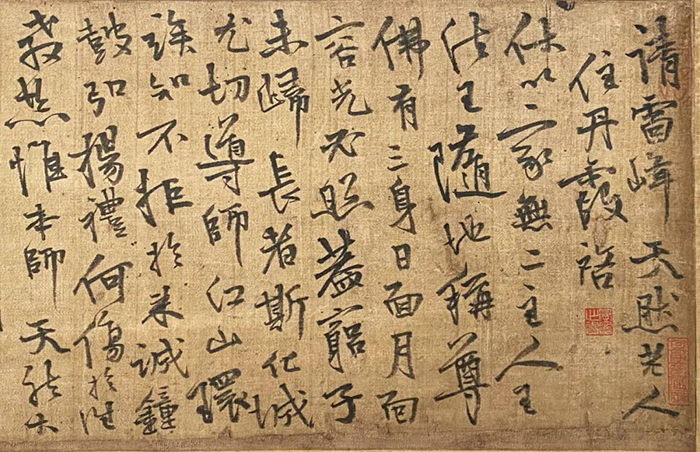 請雷峰天然老人
住丹霞
伏以家無二主人王
法王隨地稱尊
佛有三身日面月面
容光必照蓋窮子
未歸長者斯化城
尤切導師江山環
知不拒於来誠鐘
鼓引揚禮何傷於往
教恭惟本師天然大